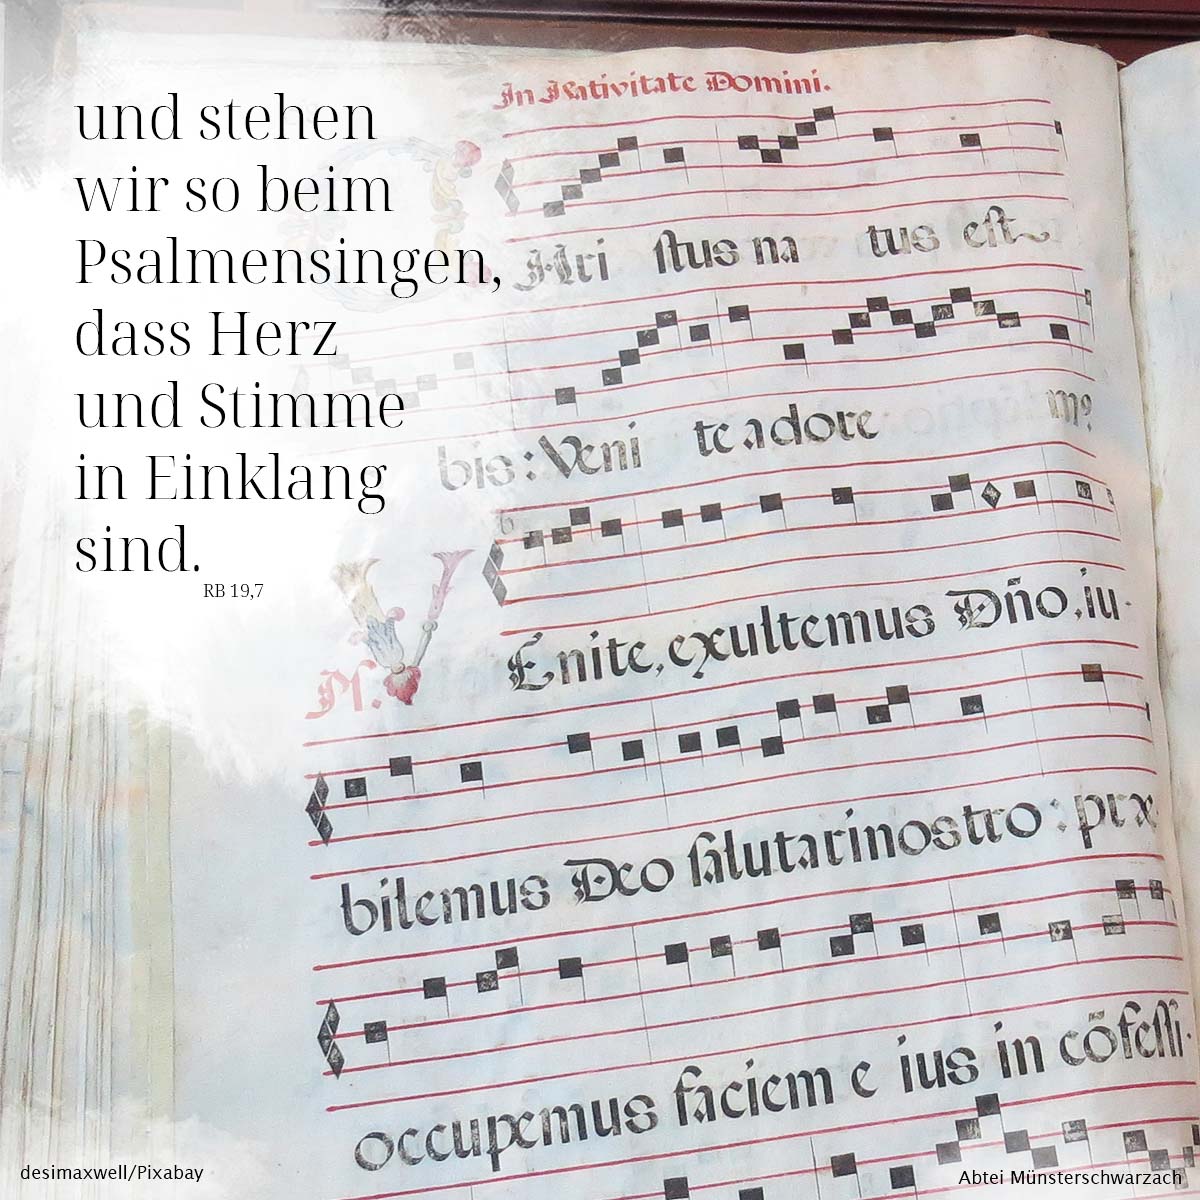 und stehen
wir so beim
Psalmensingen,
dass Herz
und Stimme
in Einklang
sind.
RB 19,7
In Nativitate Domini.
Hri stus na tus est
bis: Veni te adore m9
Enite, exultemus Dño, iu-
bilemus Deo salutari nostro: præ
occupemus faciem e ius in cõfessi-
desimaxwell/Pixabay
Abtei Münsterschwarzach